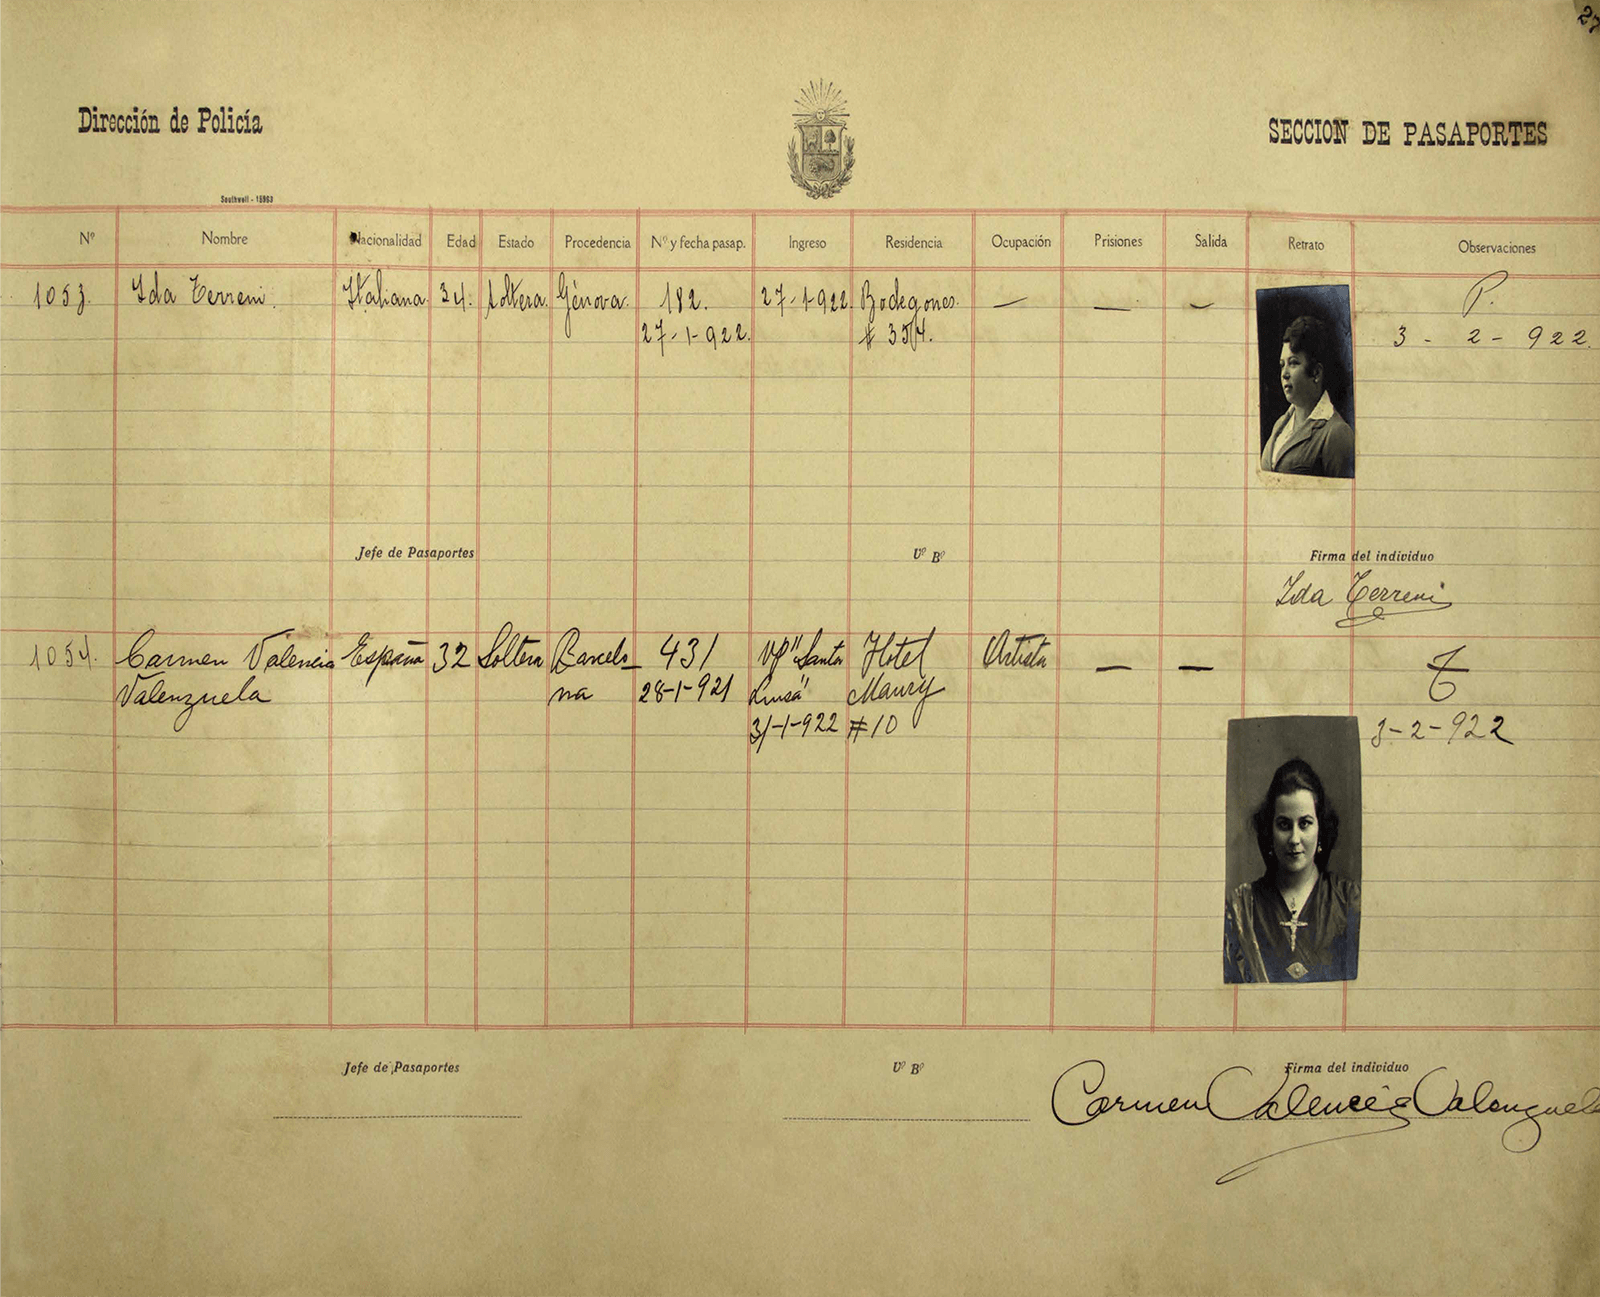 27
Dirección de Policía
SECCION DE PASAPORTES
Southwell - 18963
Nº Nombre Nacionalidad Edad Estado Procedencia Nº y fecha pasap. Ingreso Residencia Ocupación Prisiones Salida Retrato Observaciones
1053. Ida Terreni. Italiana. 34. Soltera. Génova. 182. 27-1-922. Bodegones. — — — P.
27-1-922. # 354. 3-2-922.
Jefe de Pasaportes Vº Bº Firma del individuo
Ida Terreni
1054. Carmen Valencia España 32 Soltera Barcelo- 431 Vp "Santa Hotel Artista — —
Valenzuela na 28-1-921 Luisa" Maury
31-1-922 #10 3-2-922
Jefe de Pasaportes Vº Bº Firma del individuo
Carmen Valencia Valenzuela